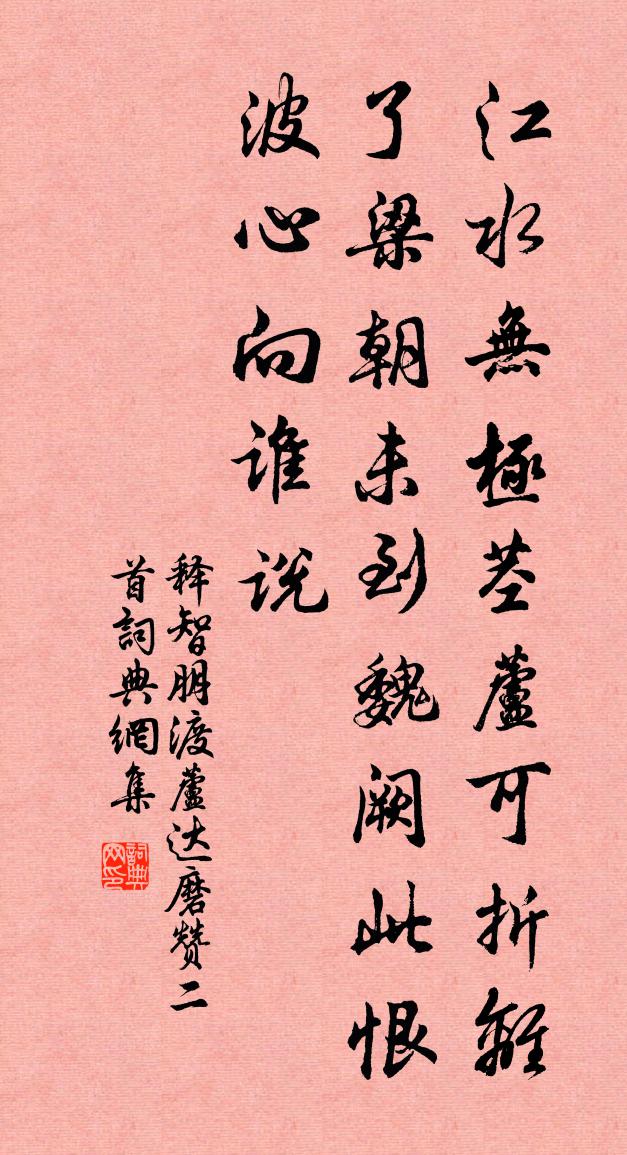 江水無極茎蘆可折離
了梁朝未到魏阙此恨
波心向誰説
释智朋渡蘆达磨赞二
首詞典網集
詞典
网印